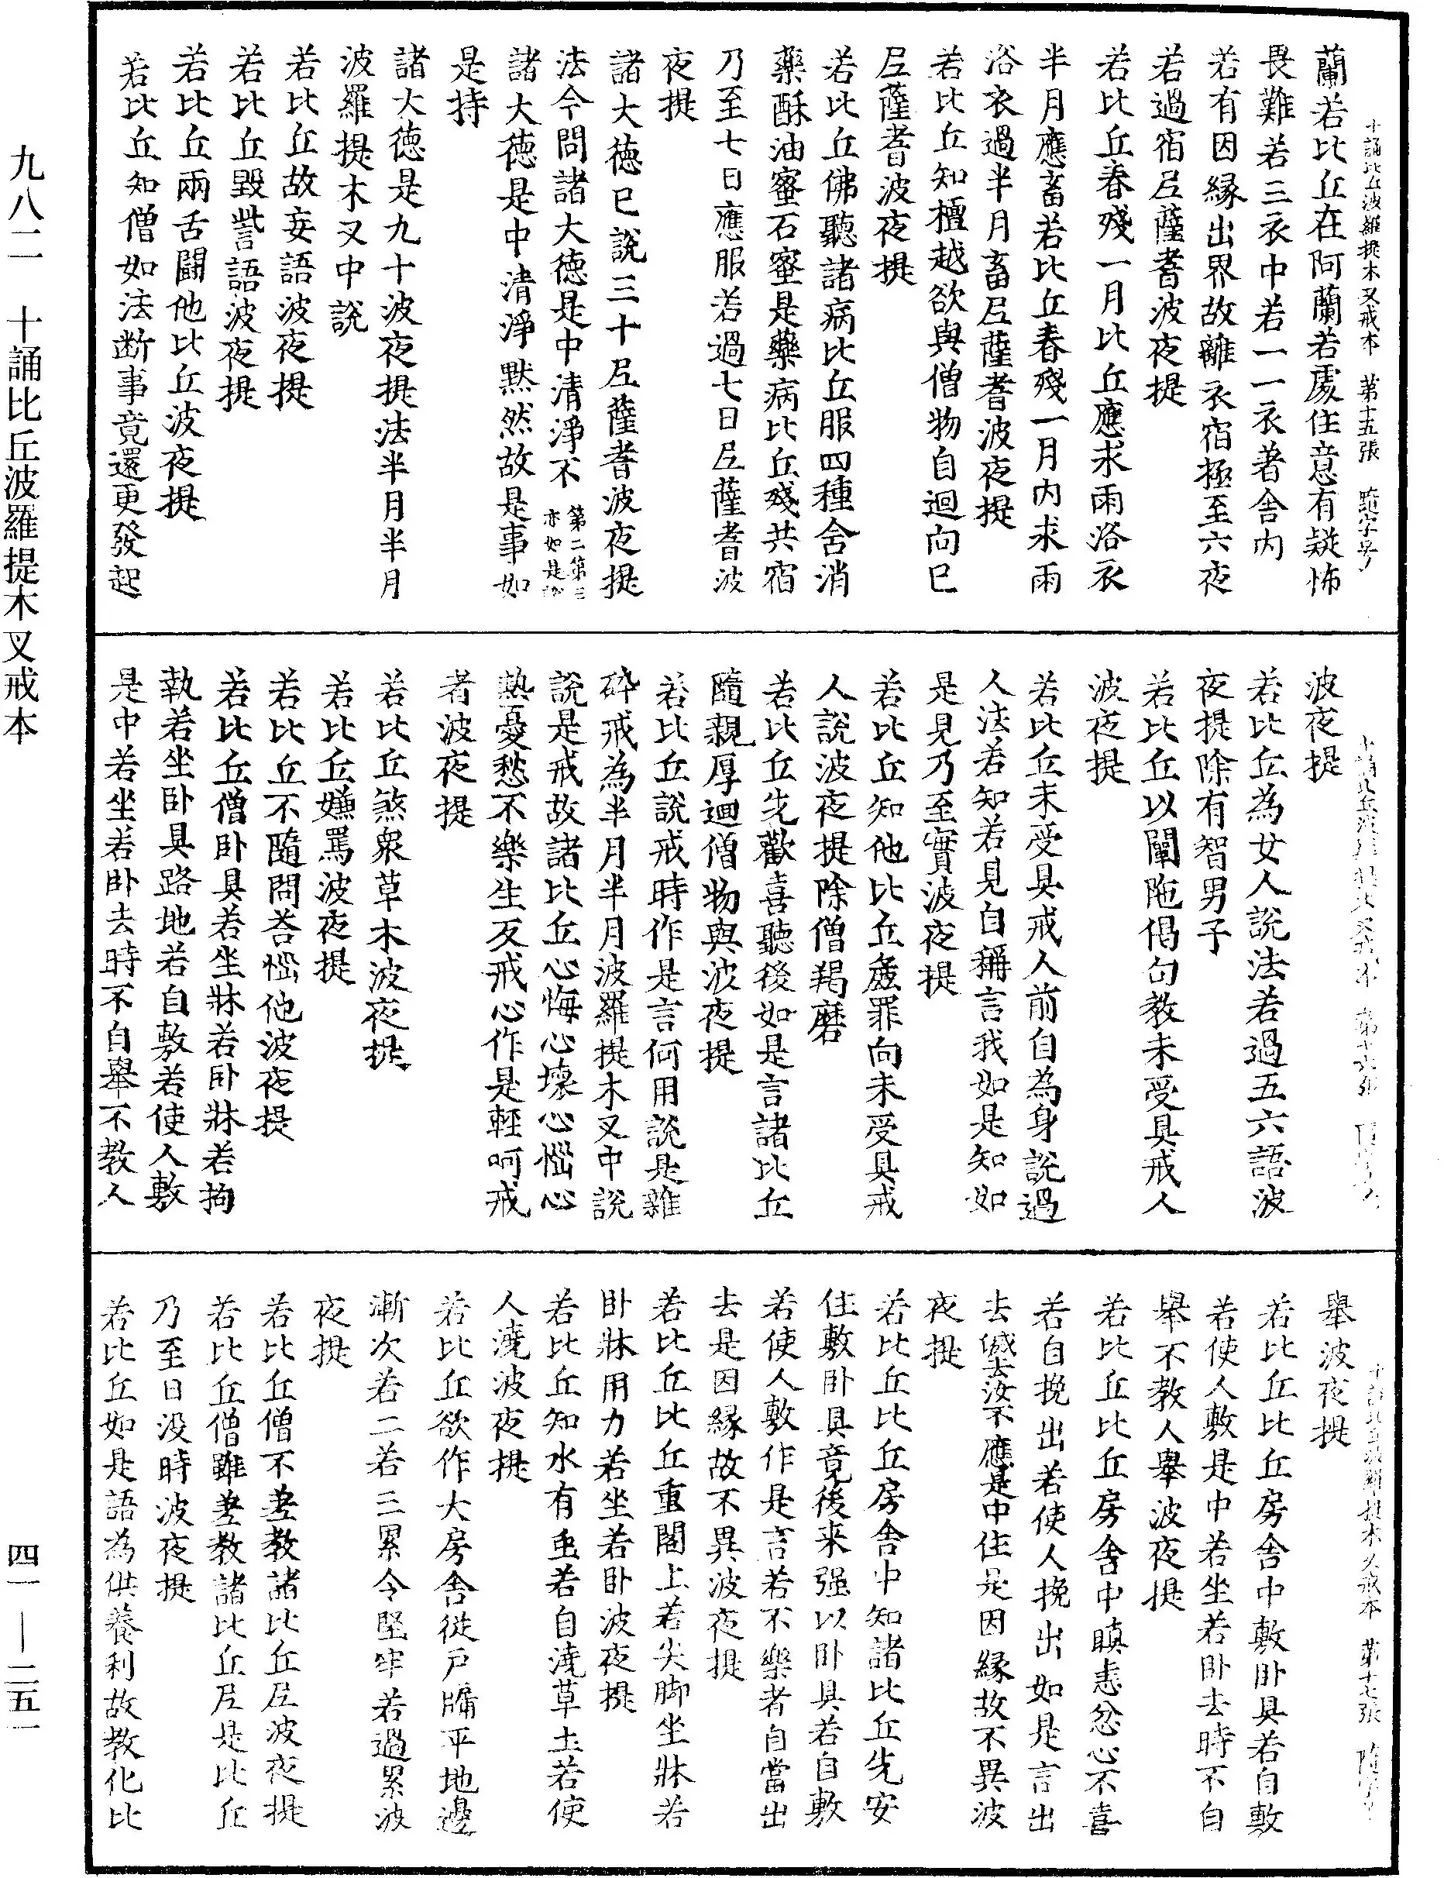 十誦比丘波羅提木叉戒本　第十五張　隨字号
蘭若比丘在阿蘭若處住意有疑怖
畏難若三衣中若一一衣著舍内
若有因緣出界故離衣宿極至六夜
若過宿尼薩耆波夜提
若比丘春殘一月比丘應求雨浴衣
半月應畜若比丘春殘一月内求雨
浴衣過半月畜尼薩耆波夜提
若比丘知檀越欲與僧物自迴向己
尼薩耆波夜提
若比丘佛聽諸病比丘服四種含消
藥酥油蜜石蜜是藥病比丘殘共宿
乃至七日應服若過七日尼薩耆波
夜提
諸大德已說三十尼薩耆波夜提
法今問諸大德是中清淨不第二第三亦如是說
諸大德是中清淨默然故是事如
是持
諸大德是九十波夜提法半月半月
波羅提木叉中說
若比丘故妄語波夜提
若比丘毀呰語波夜提
若比丘兩舌鬪他比丘波夜提
若比丘知僧如法斷事竟還更發起
十誦比丘波羅提木叉戒本　第十六張
波夜提
若比丘為女人說法若過五六語波
夜提除有智男子
若比丘以闡陁偈句教未受具戒人
波夜提
若比丘未受具戒人前自為身說過
人法若知若見自稱言我如是知如
是見乃至實波夜提
若比丘知他比丘麁罪向未受具戒
人說波夜提除僧羯磨
若比丘先歡喜聽後如是言諸比丘
隨親厚迴僧物與波夜提
若比丘說戒時作是言何用說是雜
碎戒為半月半月波羅提木叉中說
說是戒故諸比丘心悔心壞心惱心
熱憂愁不樂生反戒心作是輕呵戒
者波夜提
若比丘煞衆草木波夜提
若比丘嫌罵波夜提
若比丘不隨問荅惱他波夜提
若比丘僧卧具若坐牀若卧牀若拘
執若坐卧具路地若自敷若使人敷
是中若坐若卧去時不自舉不教人
十誦比丘波羅提木叉戒本　第十七張　隨字号
舉波夜提
若比丘比丘房舍中敷卧具若自敷
若使人敷是中若坐若卧去時不自
舉不教人舉波夜提
若比丘比丘房舍中瞋恚忿心不喜
若自挽出若使人挽出如是言出
去滅去汝不應是中住是因緣故不異波
夜提
若比丘比丘房舍中知諸比丘先安
住敷卧具竟後来强以卧具若自敷
若使人敷作是言若不樂者自當出
去是因緣故不異波夜提
若比丘比丘重閣上若尖脚坐牀若
卧牀用力若坐若卧波夜提
若比丘知水有虫若自澆草土若使
人澆波夜提
若比丘欲作大房舍從戶牖平地邊
漸次若二若三累令堅牢若過累波
夜提
若比丘僧不差教諸比丘尼波夜提
若比丘僧雖差教諸比丘尼是比丘
乃至日没時波夜提
若比丘如是語為供養利故教化比
九八二　十誦比丘波羅提木叉戒本
四一——二五一